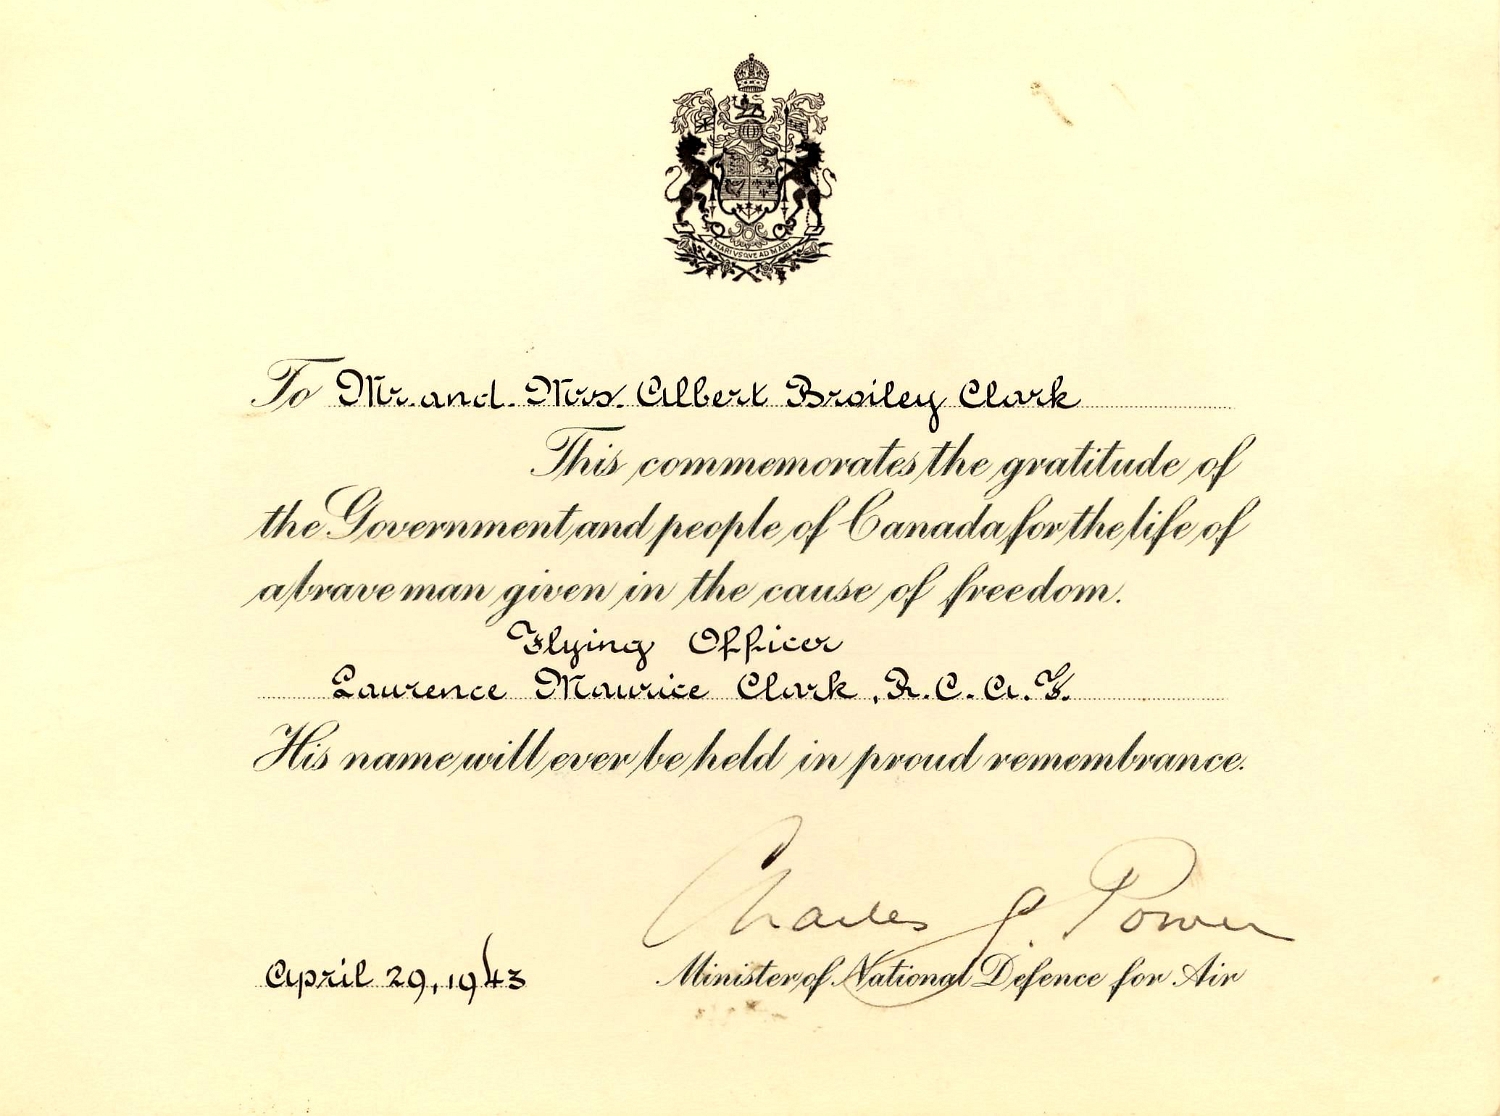 A MARI VSQVE AD MARI
To Mr. and. Mrs. Albert Brailey Clark
This commemorates the gratitude of
the Government and people of Canada for the life of
a brave man given in the cause of freedom.
Flying Officer
Laurence Maurice Clark, R.C.A.F.
His name will ever be held in proud remembrance.
Charles G. Power
April 29, 1943 Minister of National Defence for Air